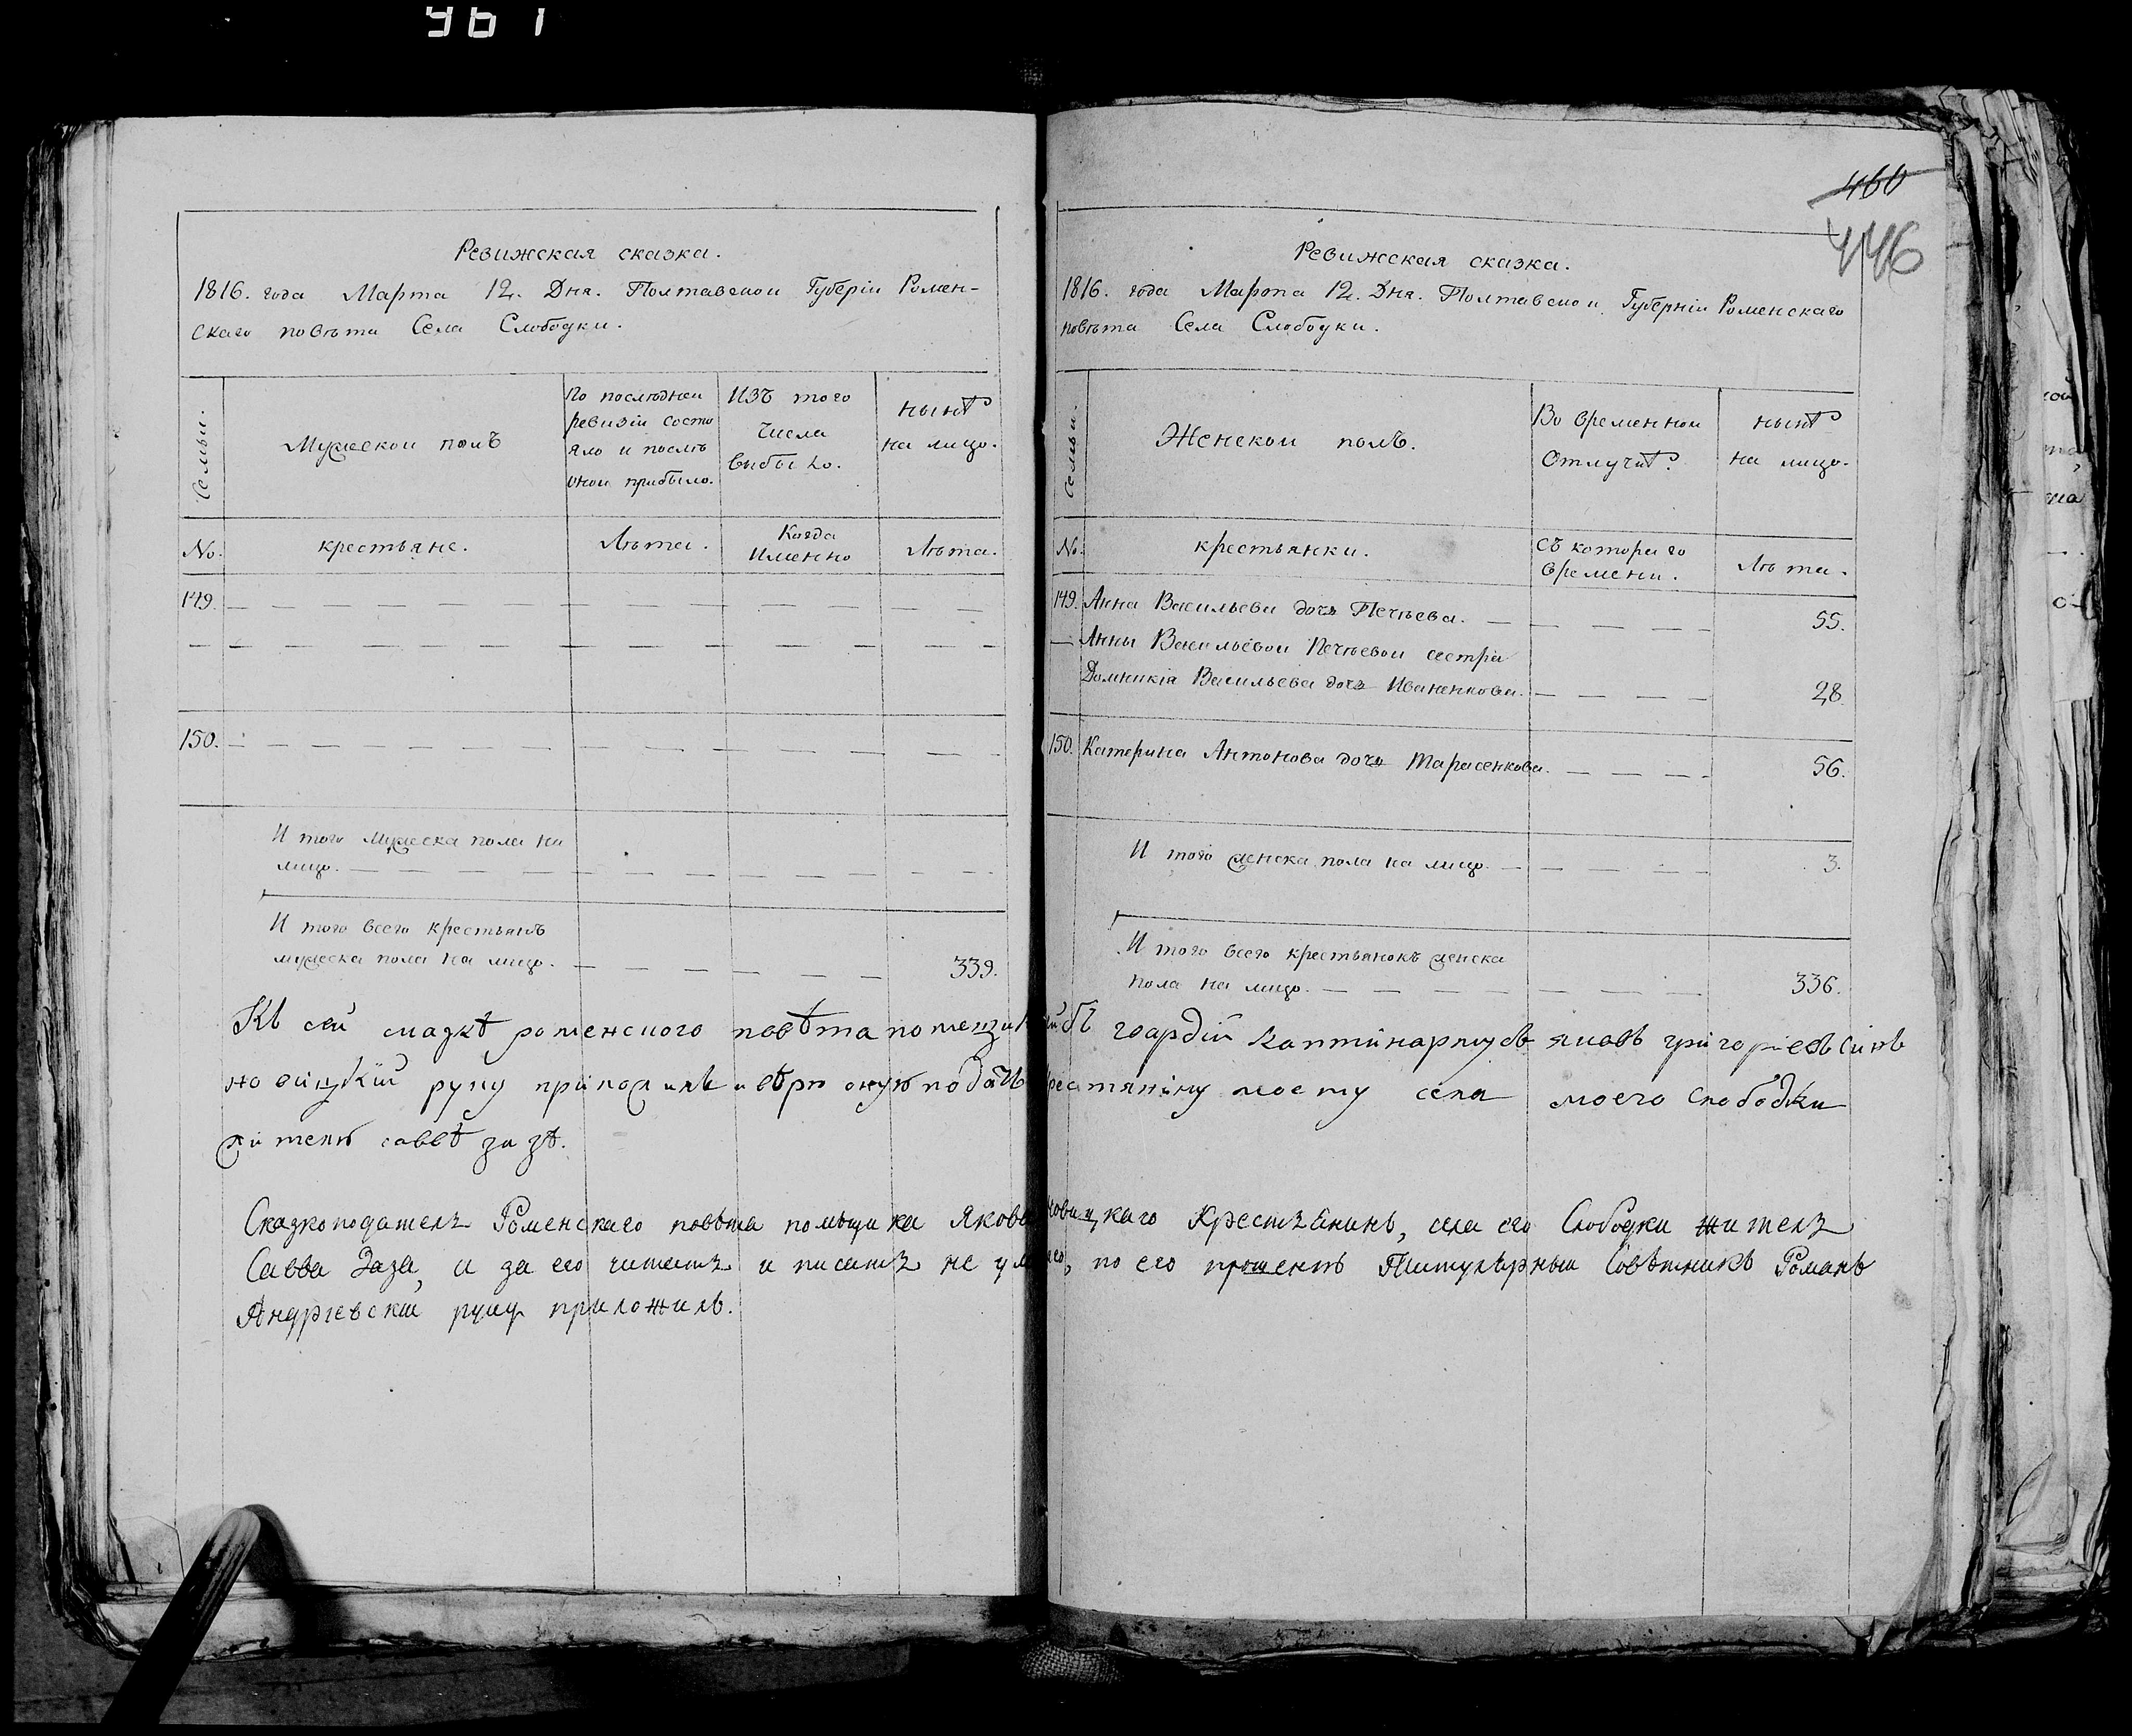 961
Ревижская сказка.
1816. года Марта 12. Дня. Полтавской Губерніи Ромен-
скаго повѣта Села Слободки.
Семьи.
Мужеской полъ
По последней
ревизіи состо
яло и послѣ
оной прибыло.
ИЗЪ того
числа
выбыло.
нынѣ
на лицо.
No.
крестьяне.
Лѣта.
Когда
Именно
Лѣта.
149.
150.
И того мужеска пола на
лицо.
И того всего крестьянъ
мужеска пола на лицо. 339.
460
446
Ревижская сказка.
1816. года Марта 12. Дня. Полтавской Губерніи Роменскаго
повѣта Села Слободки.
Семьи.
Женской полъ.
Во временной
Отлучкѣ
нынѣ
на лицо.
No.
крестьянки.
Съ котораго
времени.
Лѣта.
149. Анна Васильева дочь Печѣева. 55.
Анны Васильевой Печѣевой сестра
Домникія Васильева дочь Иваненкова. 28
150. Катерина Антонова дочь Тарасенкова. 56.
И того женска пола на лицо. 3.
И того всего крестьянокъ женска
пола на лицо. 336.
Къ сей сказкѣ роменского повѣта помещикъ гвардій каптинармусъ яковъ григориевъ синъ
новицкій руку приложилъ и вѣрю оную подать крестянину моему села моего слободки
жителю саввѣ зазѣ.
Сказкоподатель Роменскаго повѣта помѣщика Якова Новицкаго Крестьянинъ, села его Слободки житель
Савва Заза, и за его читать и писать не умѣ по его прошенію Титулярный Совѣтникъ Романъ
Андріевскій руку приложилъ.